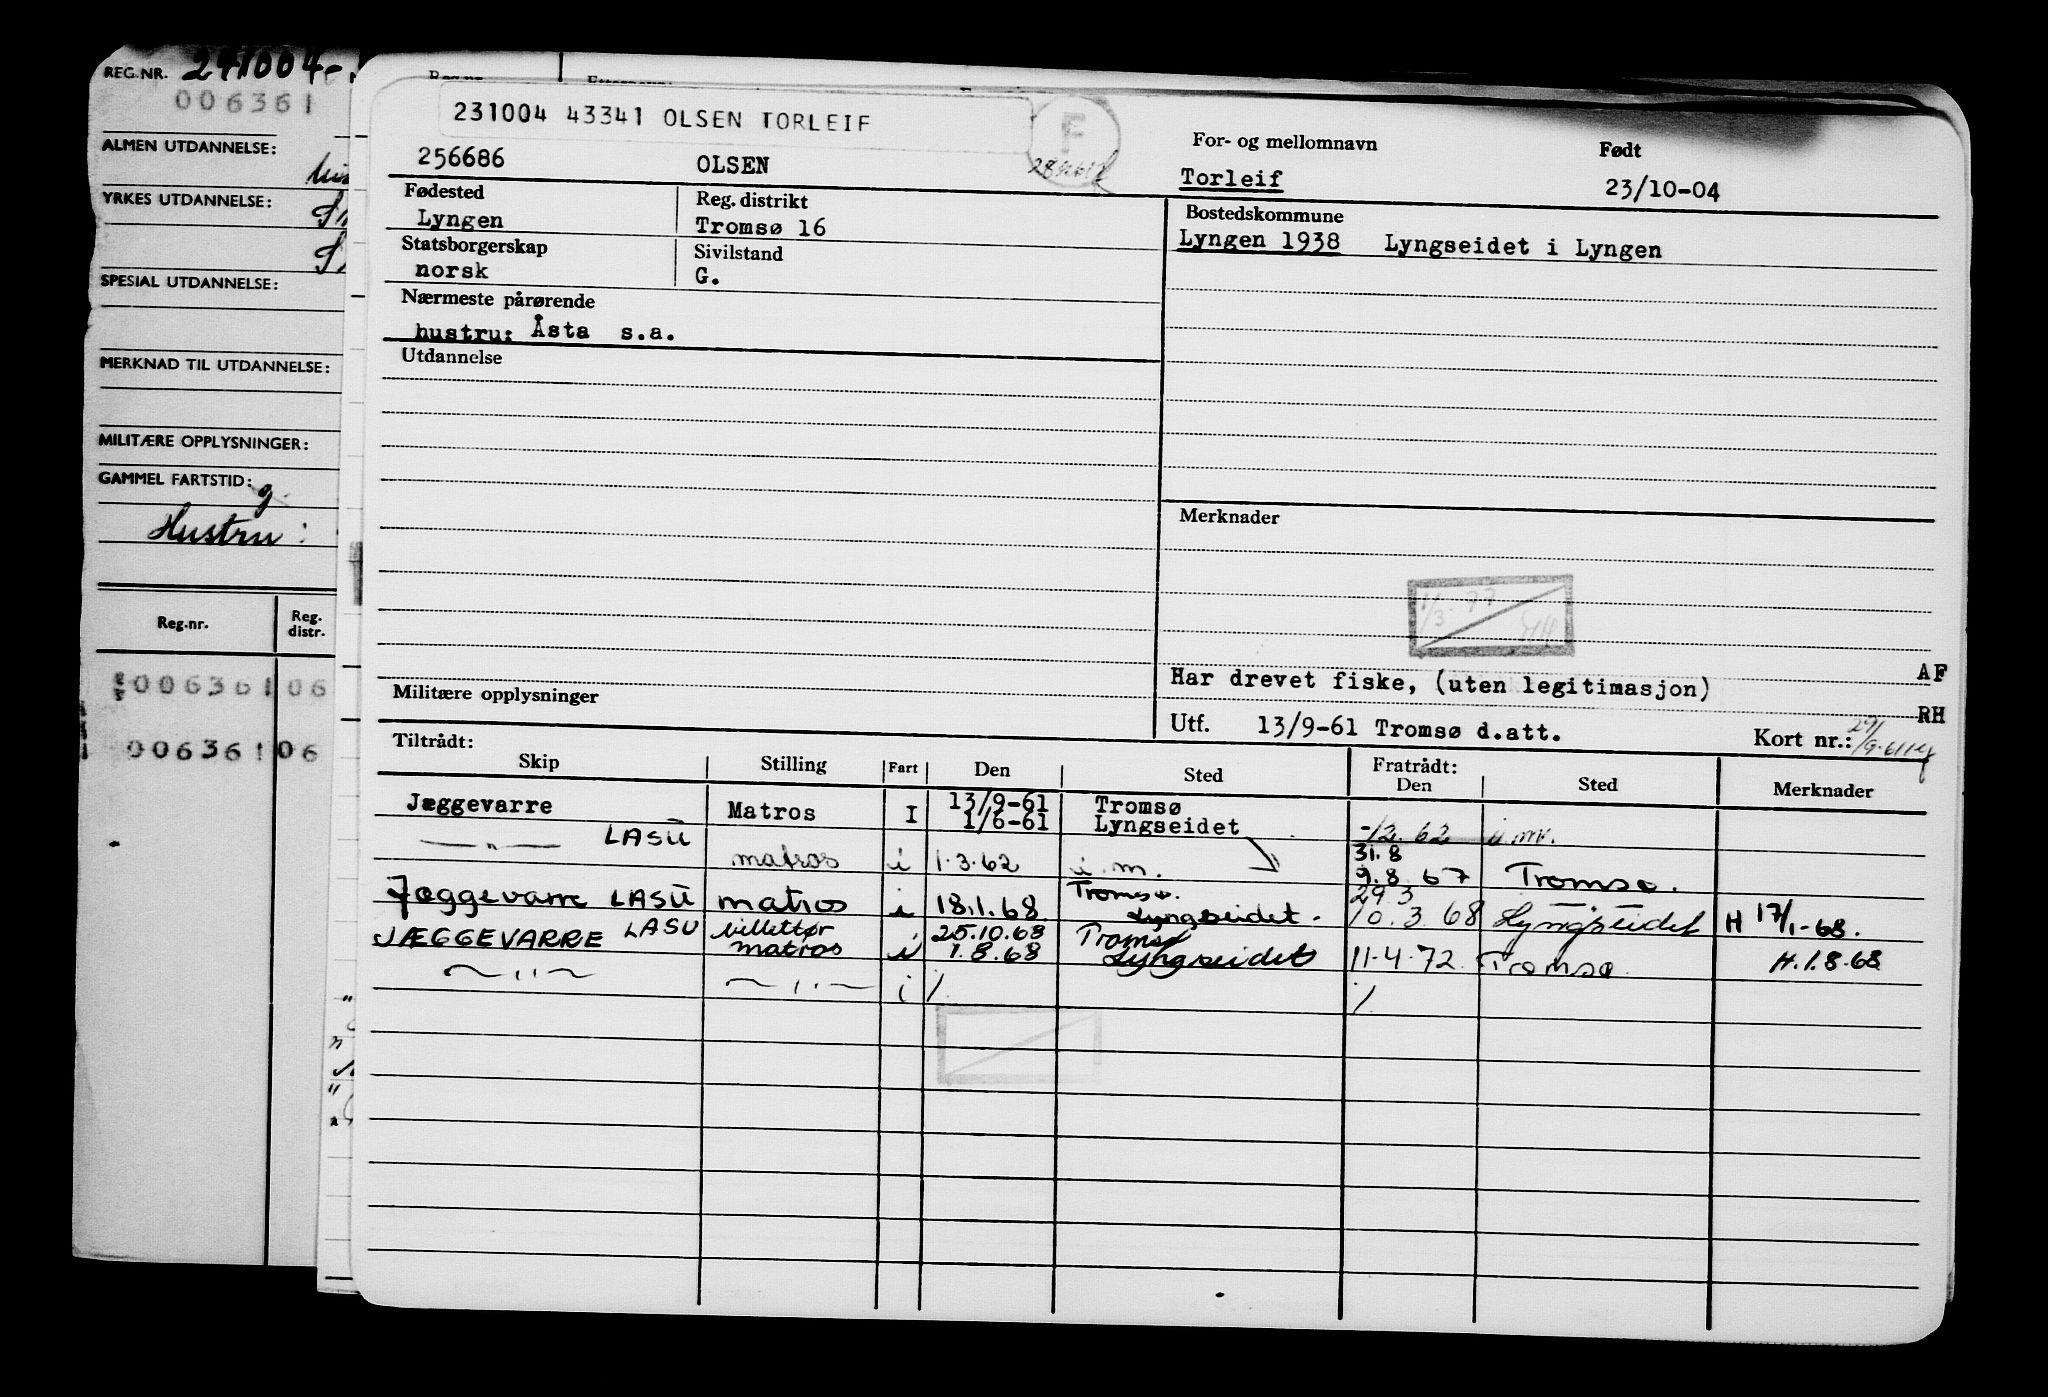 REG.NR. 241004-
006361
ALMEN UTDANNELSE:
YRKES UTDANNELSE:
SPESIAL UTDANNELSE:
MERKNAD TIL UTDANNELSE:
MILITÆRE OPPLYSNINGER:
GAMMEL FARTSTID: g.
Hustru:
Reg.nr. Reg. distr.
006361 06
006361 06
231004 43341 OLSEN TORLEIF
F
For- og mellomnavn Født
256686 OLSEN Torleif 23/10-04
Fødested Reg. distrikt Bostedskommune
Lyngen Tromsø 16 Lyngen 1938 Lyngseidet i Lyngen
Statsborgerskap Sivilstand
norsk G.
Nærmeste pårørende
hustru: Åsta s.a.
Utdannelse
Merknader
1/3-77
Har drevet fiske, (uten legitimasjon) AF
Militære opplysninger RH
Utf. 13/9-61 Tromsø d.att. Kort nr.:
Tiltrådt: Fratrådt:
Skip Stilling Fart Den Sted Den Sted Merknader
Jæggevarre Matros I 13/9-61 Tromsø
1/6-61 Lyngseidet -12.62 i.m.
—"— LASU matros i 1.3.62 i m. 31.8
9.8 67 Tromsø.
Jæggevarre LASU matros i 18.1.68 Tromsø. 29 3
Lyngseidet. 10.3.68 Lyngseidet H 17/1-68.
JÆGGEVARRE LASU billettør 25.10.68 Tromsø
matros i 1.8.68 Lyngseidet 11-4-72 Tromsø H.1.8.68
—"— —"— i /. /.